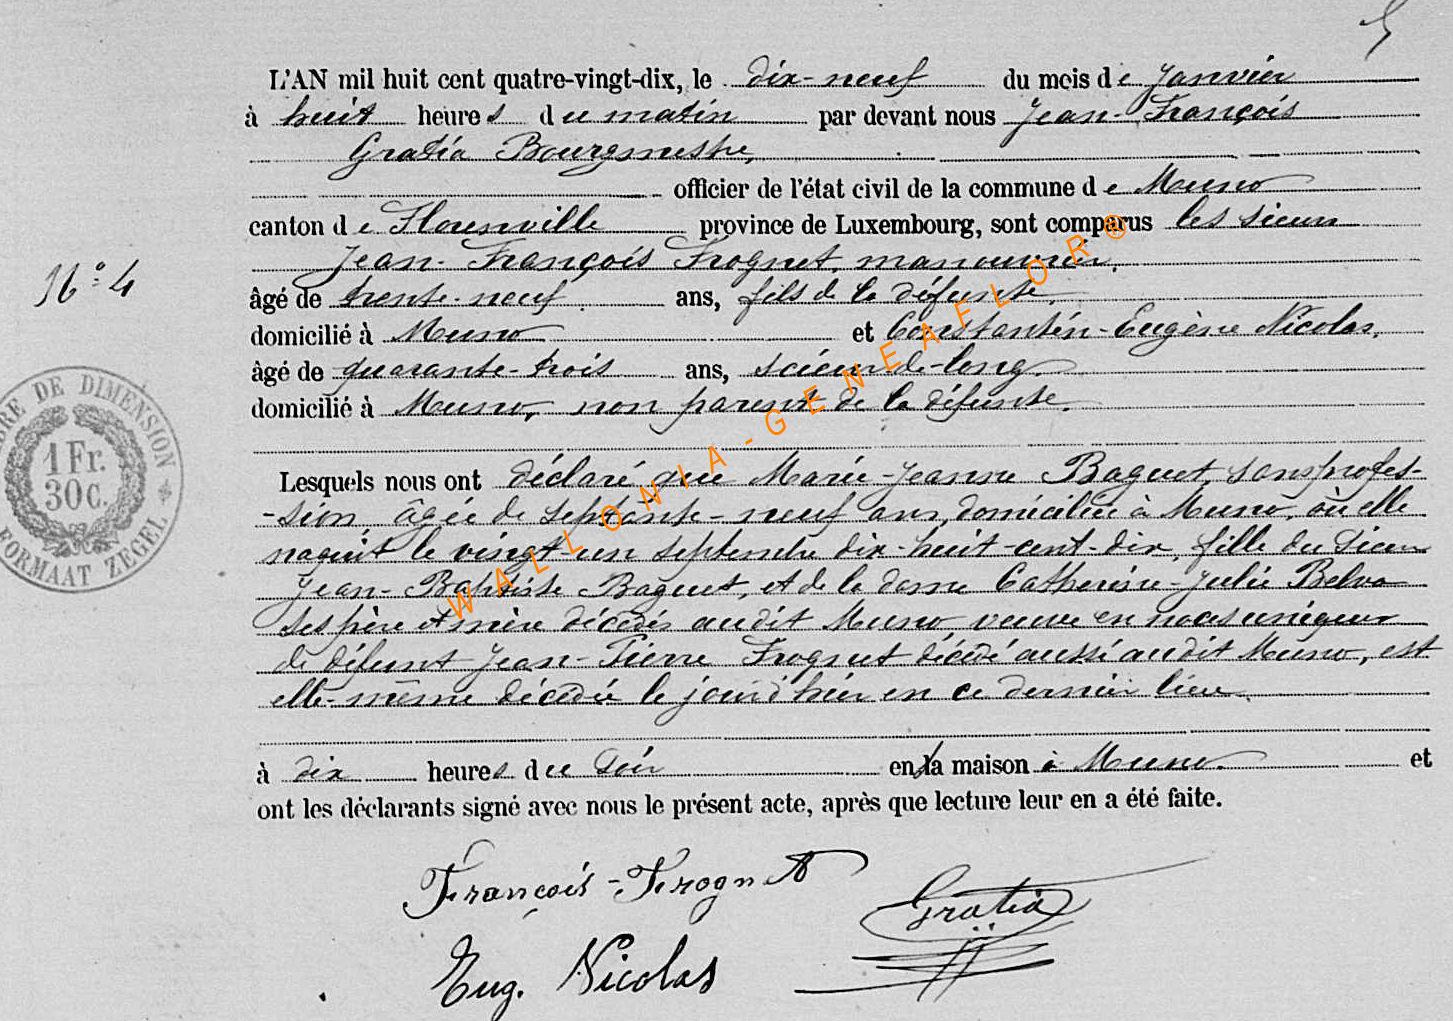 5
L'AN mil huit cent quatre-vingt-dix, le dix-neuf du mois de Janvier
à huit heures du matin par devant nous Jean-François
Gratia Bourgmestre,
officier de l'état civil de la commune de Muno
canton de Florenville province de Luxembourg, sont comparus les sieurs
Jean-François Frognet, manouvrier,
N° 4
âgé de trente-neuf ans, fils de la défunte,
domicilié à Muno et Constantin-Eugène Nicolas,
âgé de quarante-trois ans, scieur-de-long,
domicilié à Muno, non parent de la défunte.
TIMBRE DE DIMENSION
1 Fr.
30 C.
FORMAAT ZEGEL
Lesquels nous ont déclaré que Marie-Jeanne Baguet, sans profes-
-sion, âgée de septante-neuf ans, domiciliée à Muno, où elle
naquit le vingt-un septembre dix-huit-cent-dix, fille du sieur
Jean-Baptiste Baguet, et de la dame Catherine-Julie Belva
ses père et mère décédés audit Muno veuve en noces uniques
de défunt Jean-Pierre Frognet décédé aussi audit Muno, est
elle-même décédée le jour d'hier en ce dernier lieu
à dix heures du soir en la maison à Muno. et
ont les déclarants signé avec nous le présent acte, après que lecture leur en a été faite.
François-Frognet
Gratia
Eug. Nicolas
WALLONIA-GENEAFLOR®